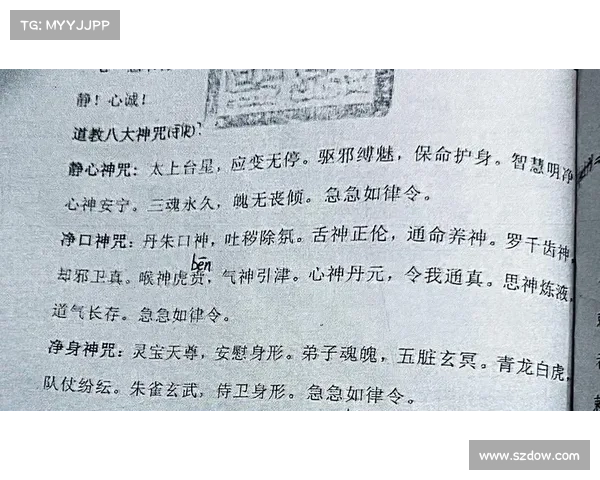 TG: MYYJJPP
静！心诚！
道教八大神咒
静心神咒：太上台星，应变无停。驱邪缚魅，保命护身。智慧明净
心神安宁。三魂永久，魄无丧倾。急急如律令。
净口神咒：丹朱口神，吐秽除氛。舌神正伦，通命养神。罗千齿神，
bēn
却邪卫真。喉神虎贲，气神引津。心神丹元，令我通真。思神炼液，
道气长存。急急如律令。
净身神咒：灵宝天尊，安慰身形。弟子魂魄，五脏玄冥。青龙白虎，
队仗纷纭。朱雀玄武，侍卫身形。急急如律令。
www.szdow.com